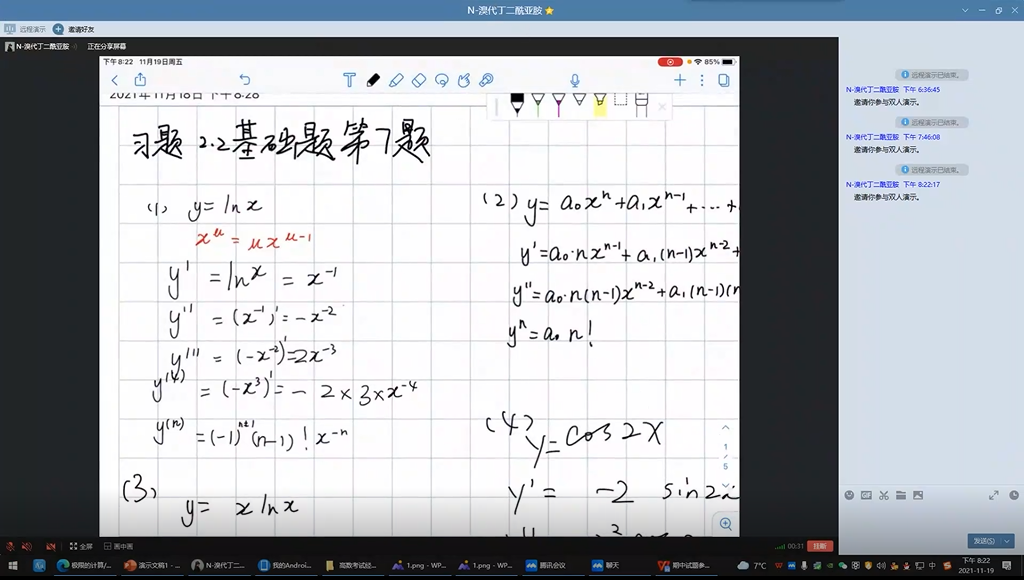 N-溴代丁二酰亚胺
远程演示 邀请好友
N-溴代丁二酰亚胺 正在分享屏幕
下午8:22 11月19日周五
85%
2021年11月18日 下午8:28
习题 2.2基础题第7题
(1) y = ln x
x^μ = μ x^μ-1
y' = ln x = x^-1
y'' = (x^-1)' = -x^-2
y''' = (-x^-2)' = 2x^-3
y^(4) = (-x^3)' = - 2 × 3 × x^-4
y^(n) = (-1)^n+1 (n-1)! x^-n
(3)
y = x ln x
(2) y = a₀x^n + a₁x^n-1 + ... +
y' = a₀·nx^n-1 + a₁(n-1)x^n-2 +
y'' = a₀·n(n-1)x^n-2 + a₁(n-1)(n
y^n = a₀ n!
(4) y = cos 2x
y' = -2 sin 2x
1
/
5
远程演示已结束。
N-溴代丁二酰亚胺 下午 6:36:45
邀请你参与双人演示。
远程演示已结束。
N-溴代丁二酰亚胺 下午 7:46:08
邀请你参与双人演示。
远程演示已结束。
N-溴代丁二酰亚胺 下午 8:22:17
邀请你参与双人演示。
发送(S)
全屏 画中画
00:31 挂断
极限的计算/... 演示文稿1 -... N-溴代丁二... 我的Androi... 高数考试经... 1.png - WP... 1.png - WP... 腾讯会议 聊天 期中试题参...
7°C
中
下午 8:22
2021-11-19